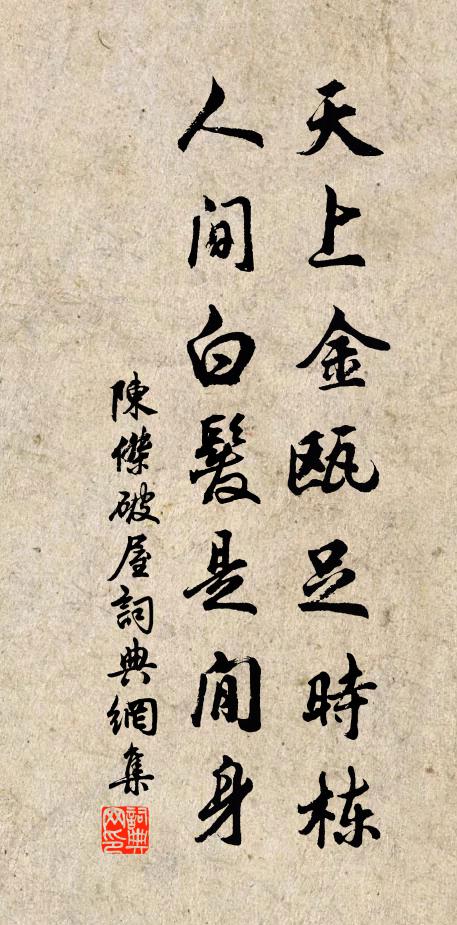 天上金甌足時栋
人间白髮是闲身
陳傑破屋詞典網集
詞典网印